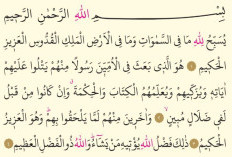 بِسْمِ اللّٰهِ الرَّحْمٰنِ الرَّحِيمِ
يُسَبِّحُ لِلّٰهِ مَا فِي السَّمٰوَاتِ وَمَا فِي الْاَرْضِ الْمَلِكِ الْقُدُّوسِ الْعَزِيزِ
الْحَكِيمِ ۝ هُوَ الَّذِي بَعَثَ فِي الْاُمِّيّٖنَ رَسُولًا مِنْهُمْ يَتْلُوا عَلَيْهِمْ
اٰيَاتِهِ وَيُزَكِّيهِمْ وَيُعَلِّمُهُمُ الْكِتَابَ وَالْحِكْمَةَ وَاِنْ كَانُوا مِنْ قَبْلُ
لَفِي ضَلَالٍ مُبِينٍ ۝ وَاٰخَرِينَ مِنْهُمْ لَمَّا يَلْحَقُوا بِهِمْ وَهُوَ الْعَزِيزُ
الْحَكِيمُ ۝ ذٰلِكَ فَضْلُ اللّٰهِ يُؤْتِيهِ مَنْ يَشَاءُ وَاللّٰهُ ذُو الْفَضْلِ الْعَظِيمِ ۝